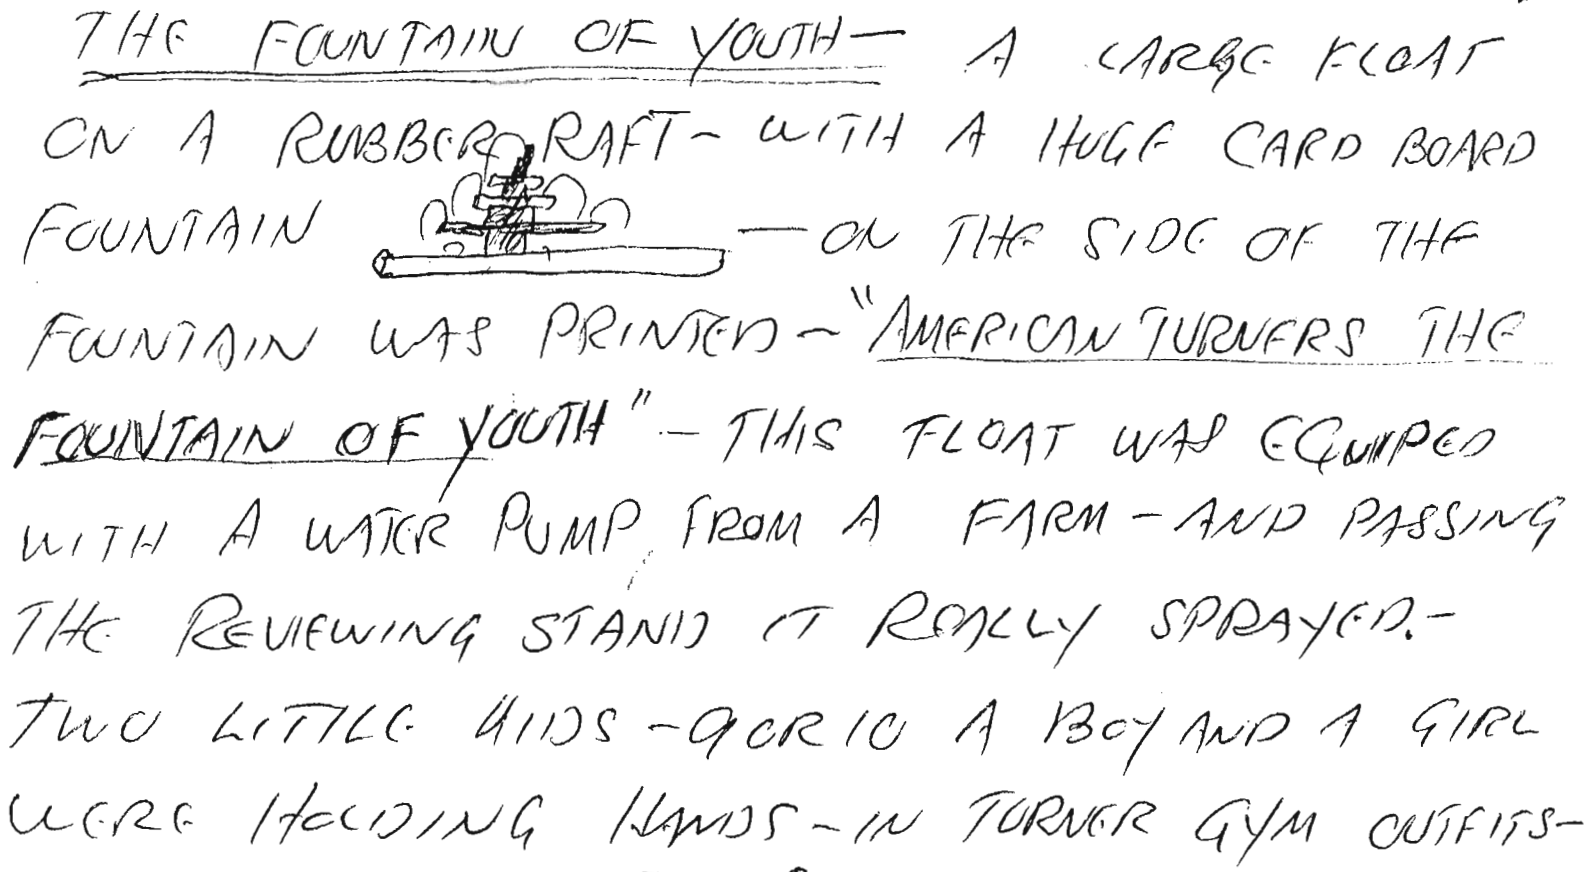 THE FOUNTAIN OF YOUTH— A LARGE FLOAT
ON A RUBBER RAFT— WITH A HUGE CARD BOARD
FOUNTAIN — ON THE SIDE OF THE
FOUNTAIN WAS PRINTED— "AMERICAN TURNERS THE
FOUNTAIN OF YOUTH" — THIS FLOAT WAS EQUIPED
WITH A WATER PUMP FROM A FARM — AND PASSING
THE REVIEWING STAND IT REALLY SPRAYED.—
TWO LITTLE KIDS — 9 OR 10 A BOY AND A GIRL
WERE HOLDING HANDS — IN TURNER GYM OUTFITS—